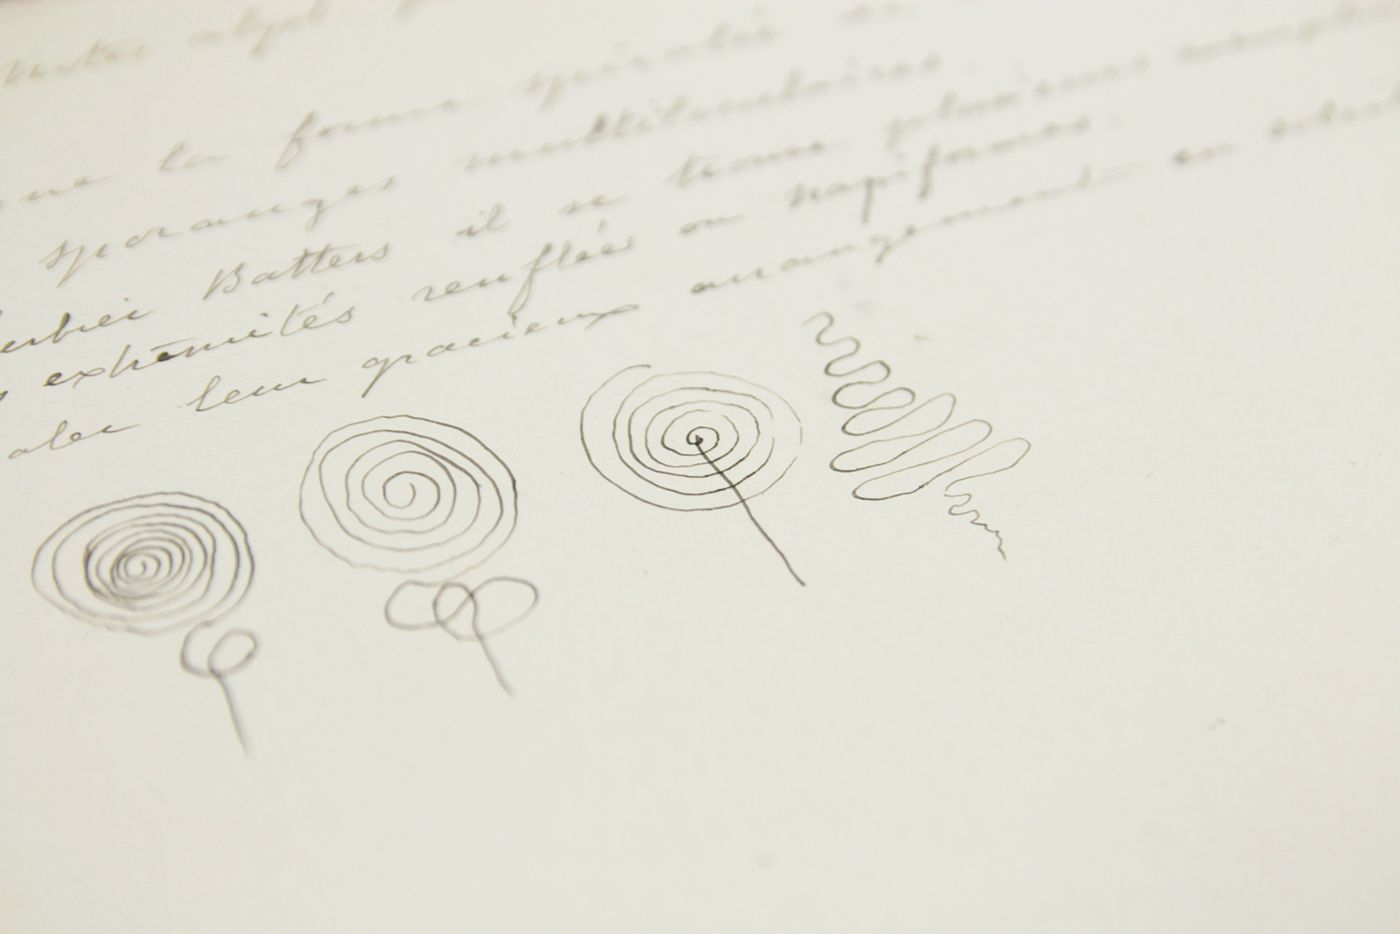 la forme spiralée
sporanges multiloculaires.
Batters il se trouve plusieurs exemplaires
extrémités renflées ou napiformes.
avec leur gracieux arrangement en